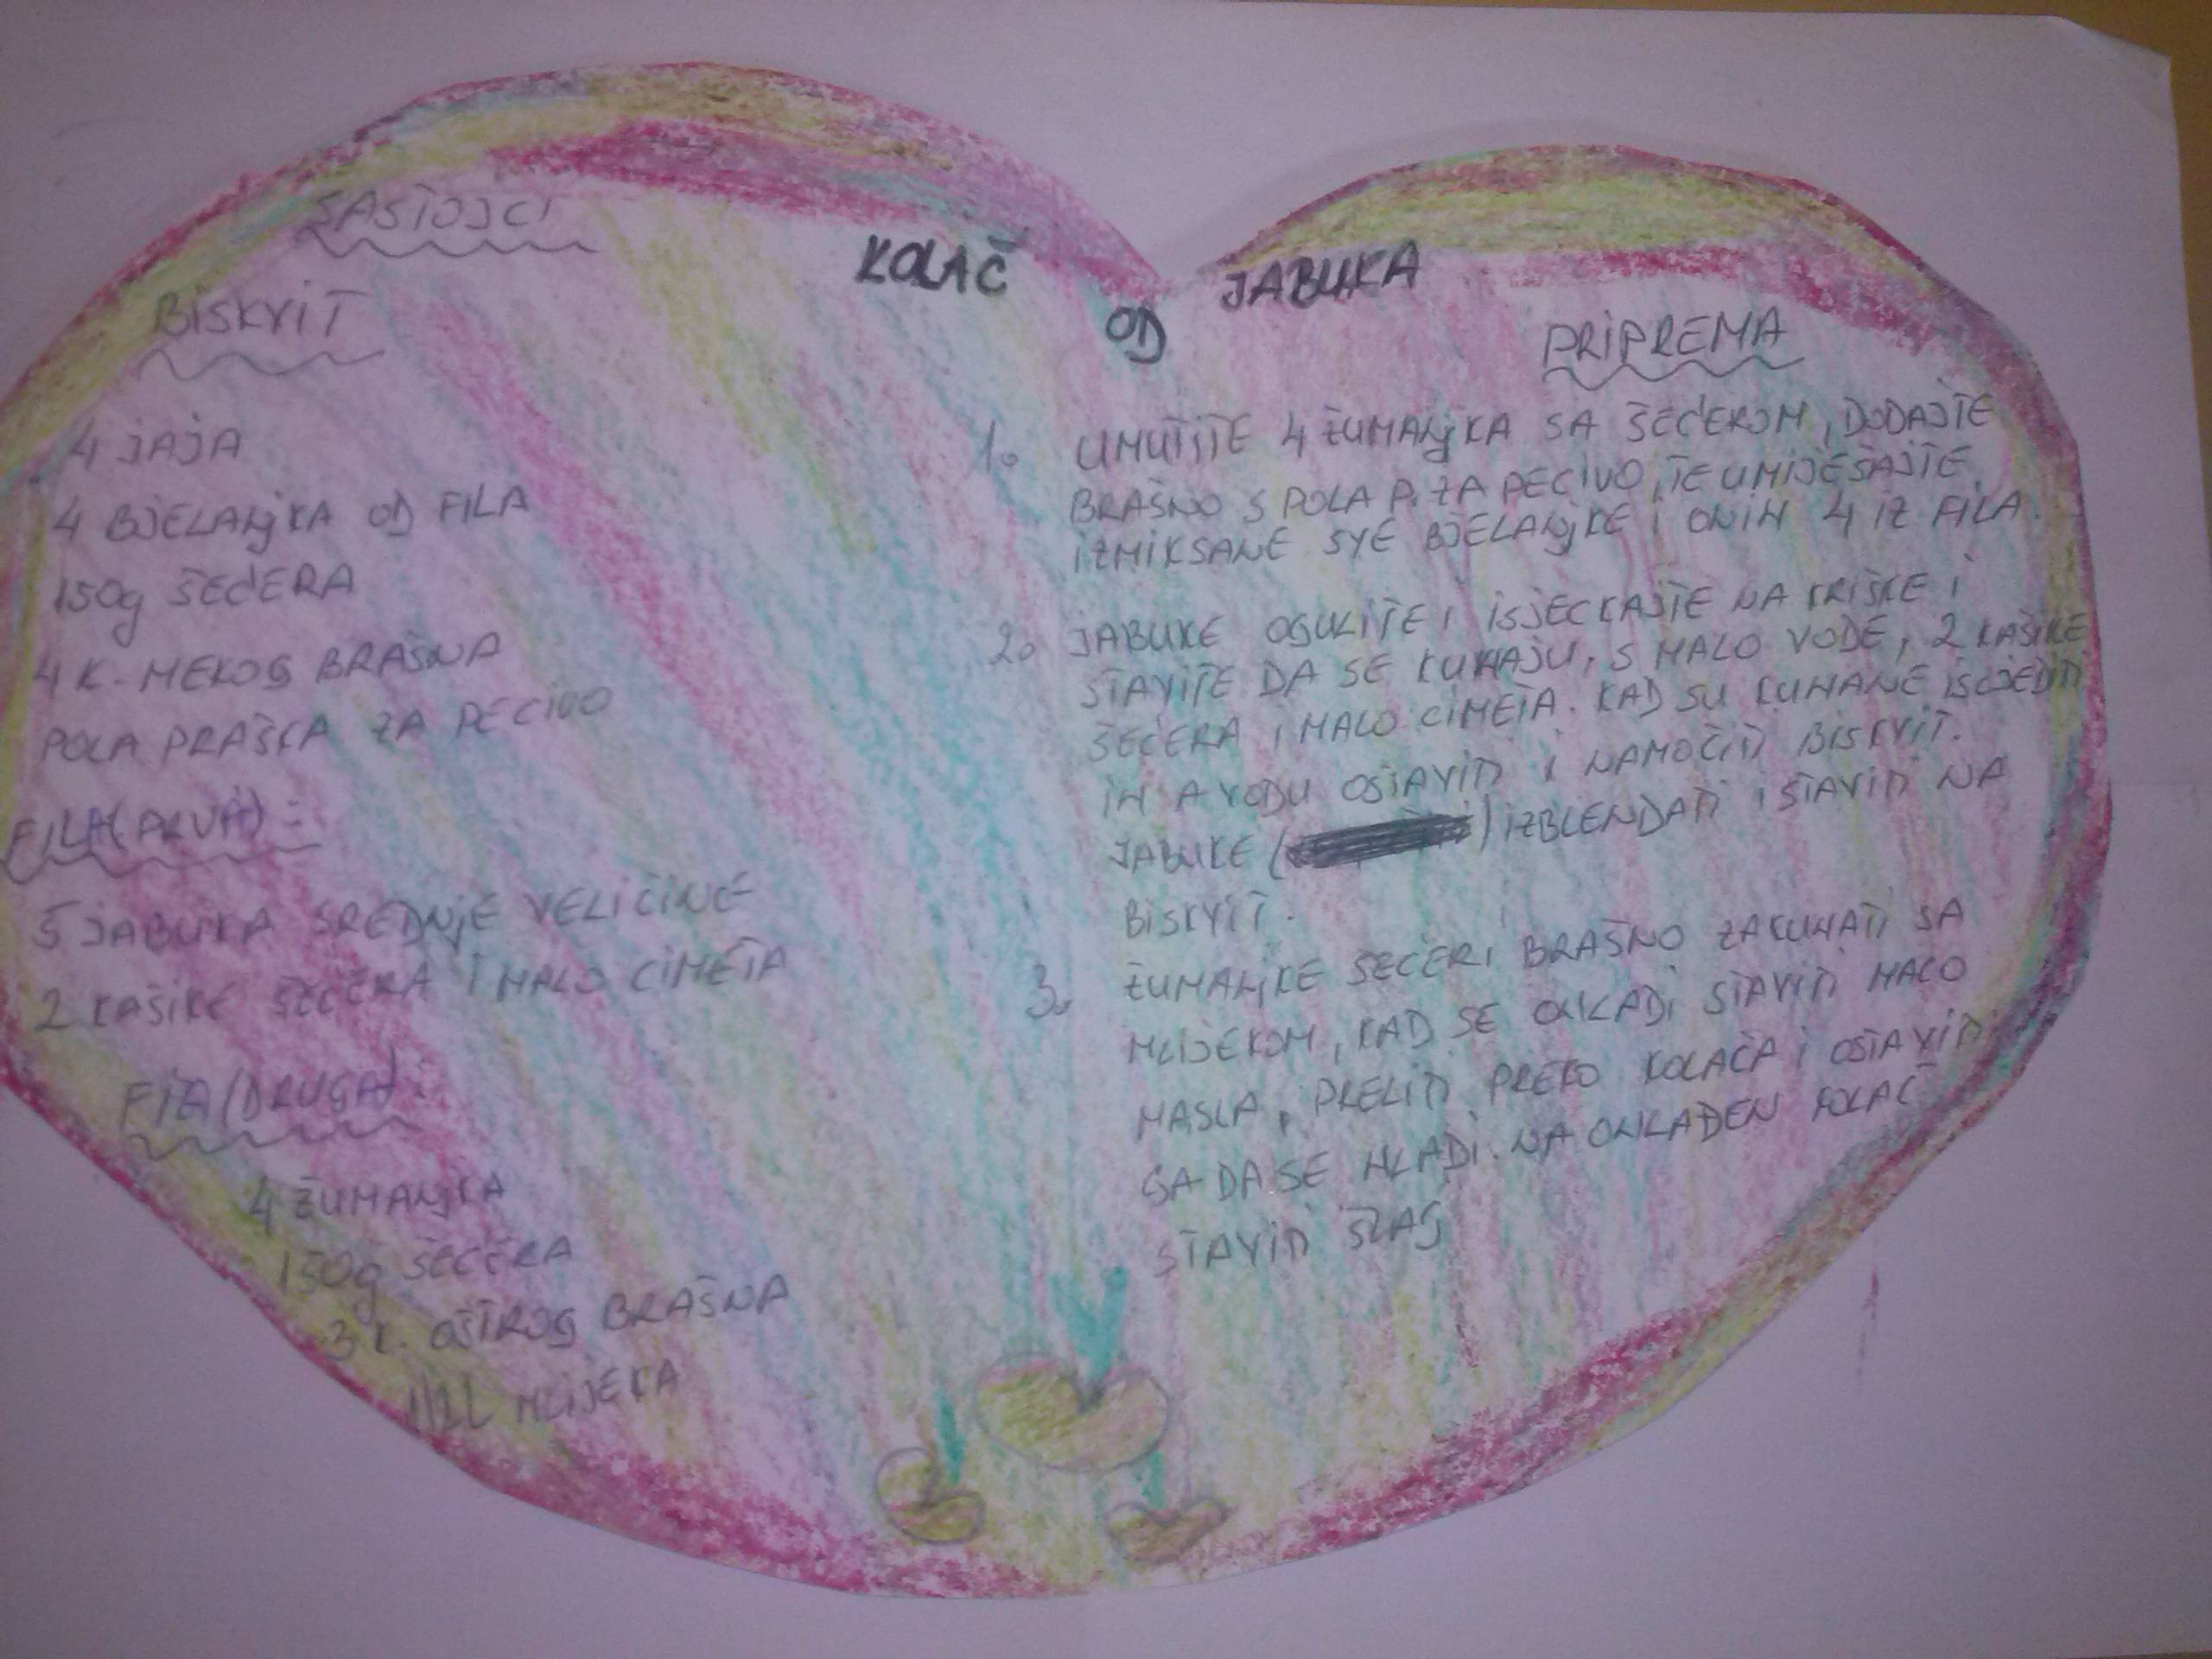 KOLAČ OD JABUKA
SASTOJCI
BISKVIT
4 JAJA
4 BJELANJKA OD FILA
150g ŠEĆERA
4 K. MEKOG BRAŠNA
POLA PRAŠKA ZA PECIVO
FILA(PRVA):
5 JABUKA SREDNJE VELIČINE
2 KAŠIKE ŠEĆERA I MALO CIMETA
FILA(DRUGA):
4 ŽUMANJKA
150g ŠEĆERA
3 K. OŠTROG BRAŠNA
1/2L MLIJEKA
PRIPREMA
1. UMUTITE 4 ŽUMANJKA SA ŠEĆEROM, DODAJTE
BRAŠNO S POLA P. ZA PECIVO, TE UMIJEŠAJTE
IZMIKSANE SVE BJELANJKE I ONIH 4 IZ FILA.
2. JABUKE OGULITE I ISJECKAJTE NA KRIŠKE I
STAVITE DA SE KUHAJU, S MALO VODE, 2 KAŠIKE
ŠEĆERA I MALO CIMETA. KAD SU KUHANE ISCJEDITI
IH A VODU OSTAVITI I NAMOČITI BISKVIT.
JABUKE ( ) IZBLENDATI I STAVITI NA
BISKVIT.
3. ŽUMANJKE ŠEĆER I BRAŠNO ZAKUHATI SA
MLIJEKOM, KAD SE OHLADI STAVITI MALO
MASLA, PRELITI PREKO KOLAČA I OSTAVITI
GA DA SE HLADI. NA OHLAĐEN KOLAČ
STAVITI ŠLAG